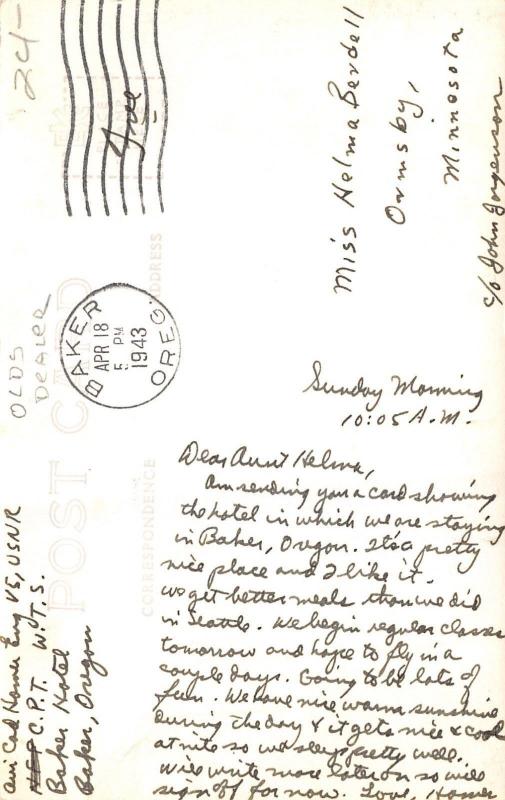 24-
Free
PLACE
BAKER
APR 18
5 PM
1943
OREG.
OLDS
DEALER
POST CARD
ADDRESS
CORRESPONDENCE
Miss Helma Berdell
Ormsby,
Minnesota
c/o John Jorgenson
Avi Cad Homer Eng V5, USNR
C.P.T. W.T.S.
Baker Hotel
Baker, Oregon
Sunday Morning
10:05 A.M.
Dear Aunt Helma,
Am sending you a card showing
the hotel in which we are staying
in Baker, Oregon. It's a pretty
nice place and I like it.
We get better meals than we did
in Seattle. We begin regular classes
tomorrow and hope to fly in a
couple days. Going to be lots of
fun. We have nice warm sunshine
during the day & it gets nice & cool
at nite so we sleep pretty well.
Will write more later on so will
sign off for now. Love, Homer